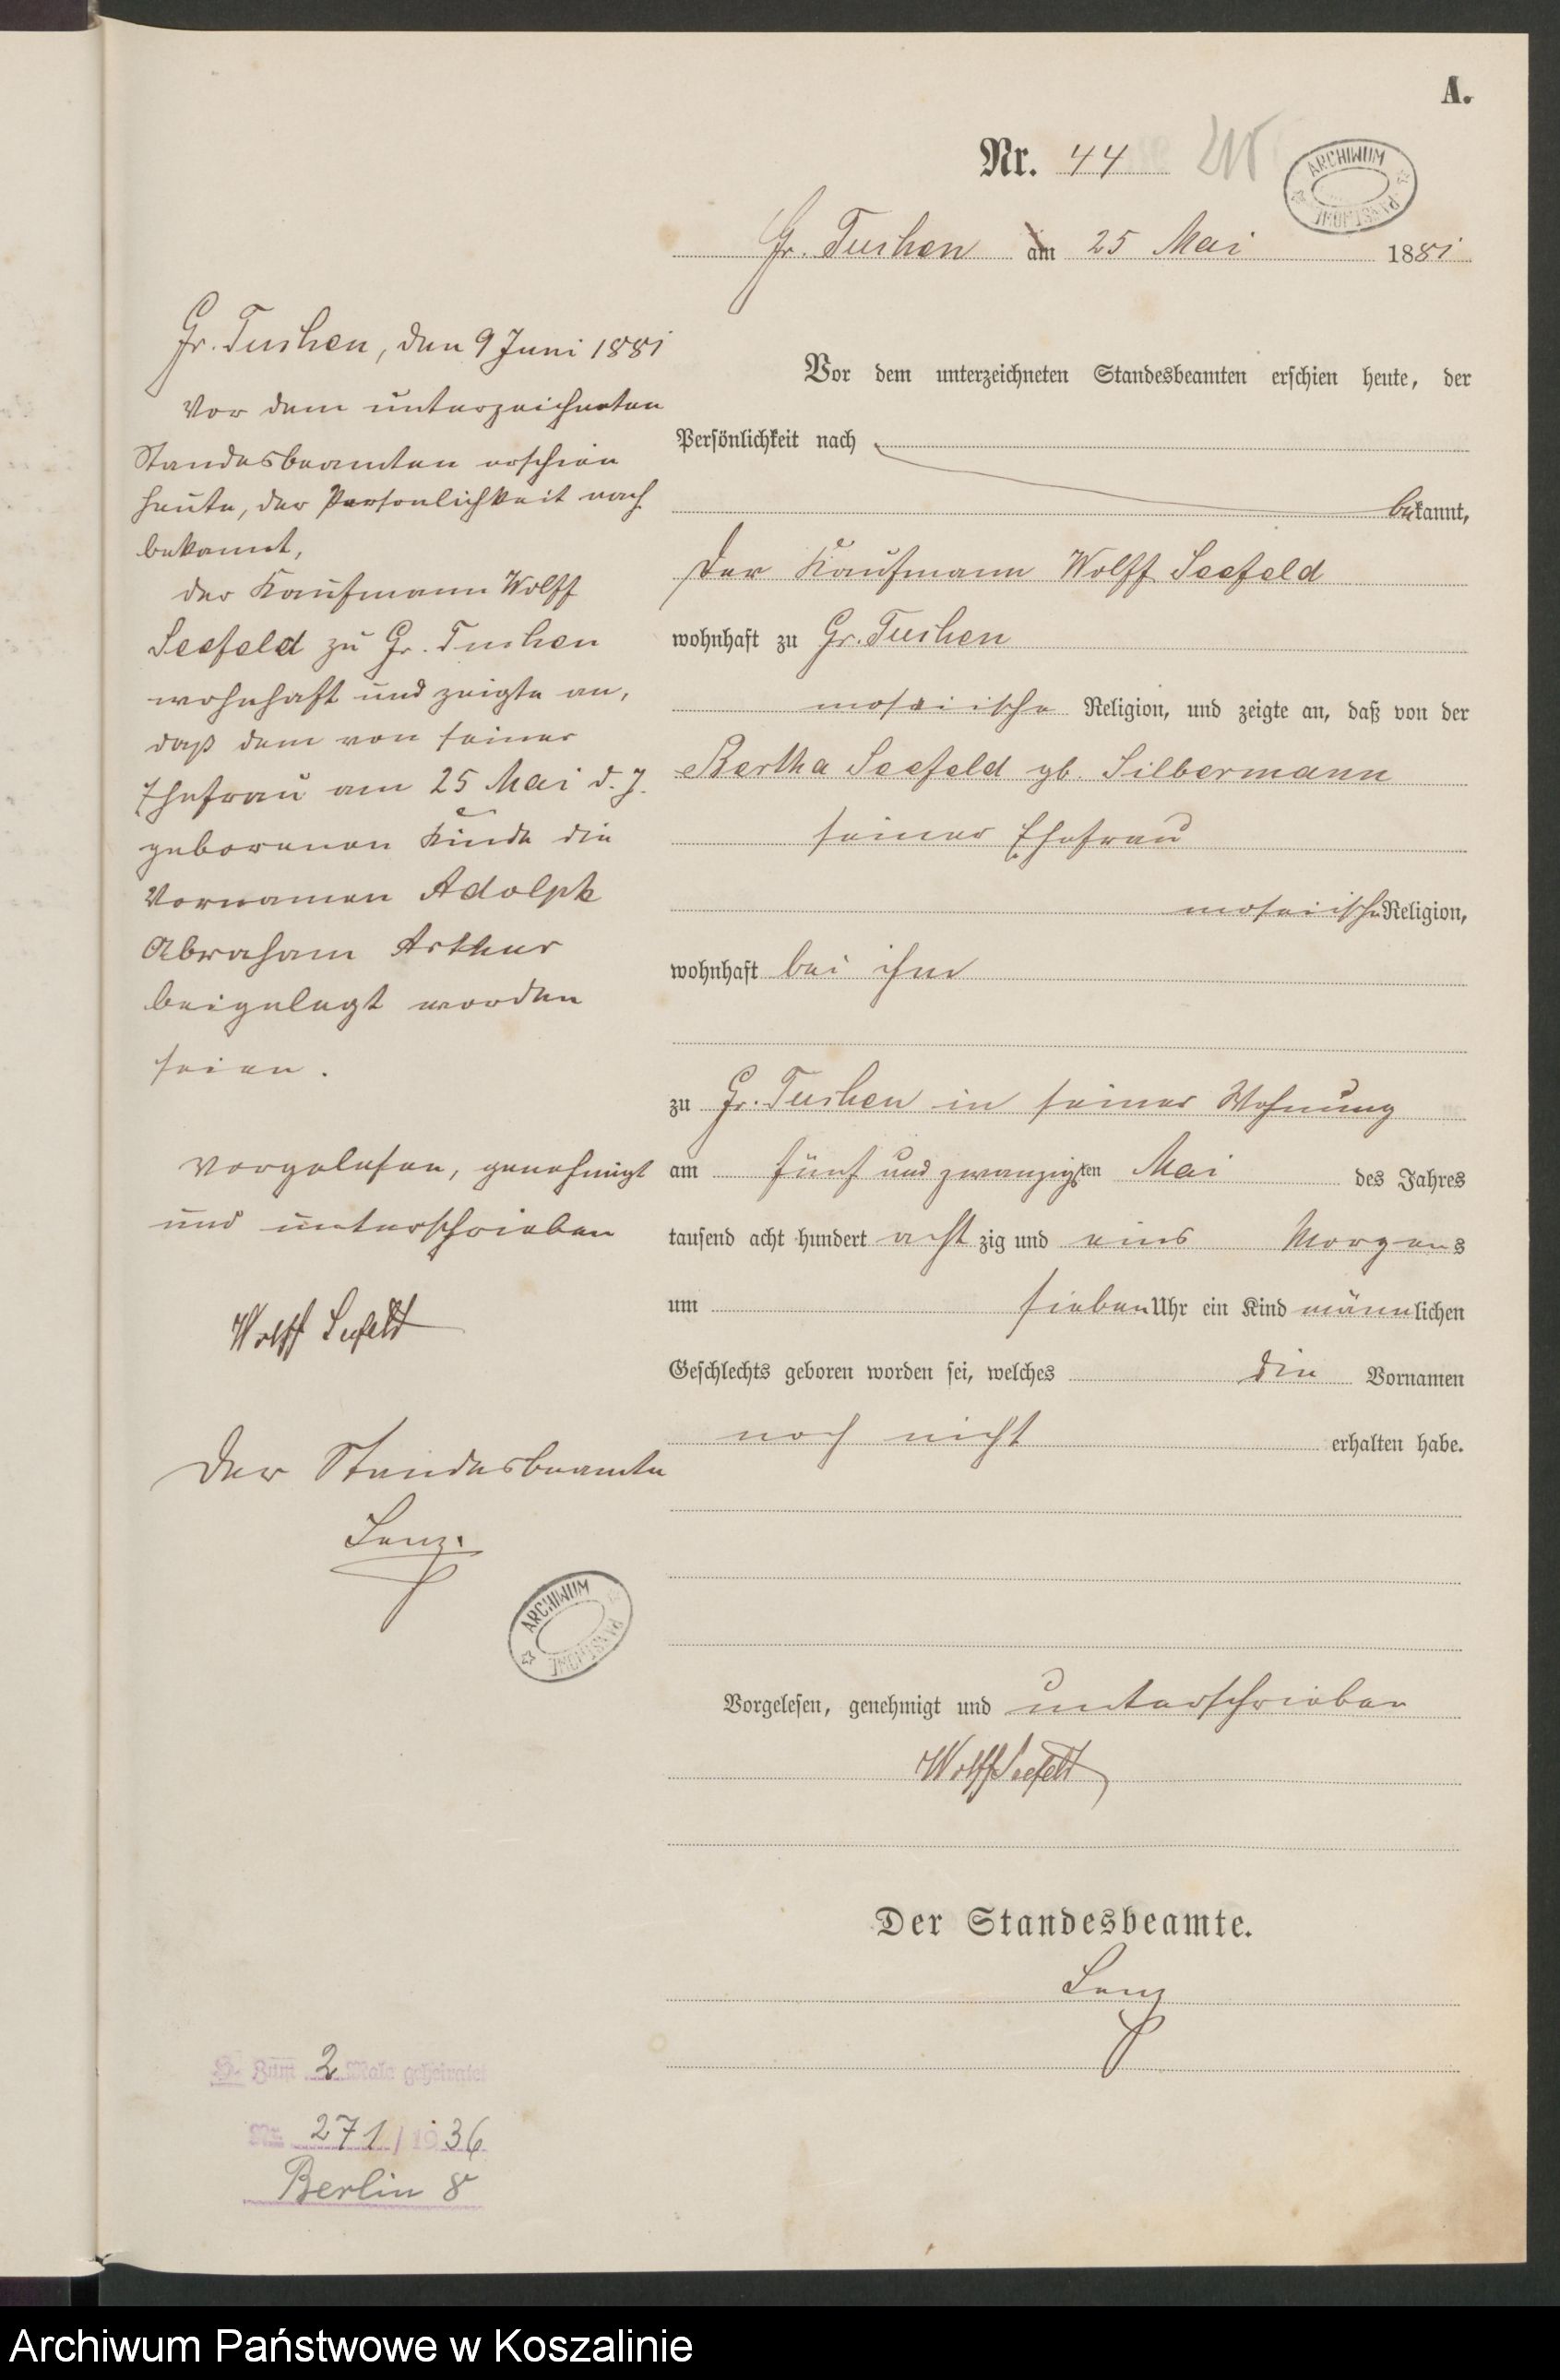 A.
Nr. 44
ARCHIWUM PAŃSTWOWE
Gr. Tuchen am 25 Mai 1881
Vor dem unterzeichneten Standesbeamten erschien heute, der
Persönlichkeit nach
bekannt,
der Kaufmann Wolff Seefeld
wohnhaft zu Gr. Tuchen
mosaiische Religion, und zeigte an, daß von der
Bertha Seefeld gb. Silbermann
seiner Ehefrau
mosaiische Religion,
wohnhaft bei ihm
zu Gr. Tuchen in seiner Wohnung
am fünf und zwanzigsten Mai des Jahres
tausend acht hundert acht zig und eins Morgens
um sieben Uhr ein Kind männlichen
Geschlechts geboren worden sei, welches die Vornamen
noch nicht erhalten habe.
Vorgelesen, genehmigt und unterschrieben
Wolff Seefeldt
Der Standesbeamte.
Lenz
Gr. Tuchen, den 9 Juni 1881
Vor dem unterzeichneten
Standesbeamten erschien
heute, der Persönlichkeit nach
bekannt,
der Kaufmann Wolff
Seefeld zu Gr. Tuchen
wohnhaft und zeigte an,
daß dem von seiner
Ehefrau am 25 Mai d. J.
geborenen Kinde die
Vornamen Adolph
Abraham Arthur
beigelegt worden
seien.
Vorgelesen, genehmigt
und unterschrieben
Wolff Seefeldt
Der Standesbeamte
Lenz.
ARCHIWUM PAŃSTWOWE
Zum 2 Male geheiratet
Nr. 271/1936
Berlin 8
Archiwum Państwowe w Koszalinie